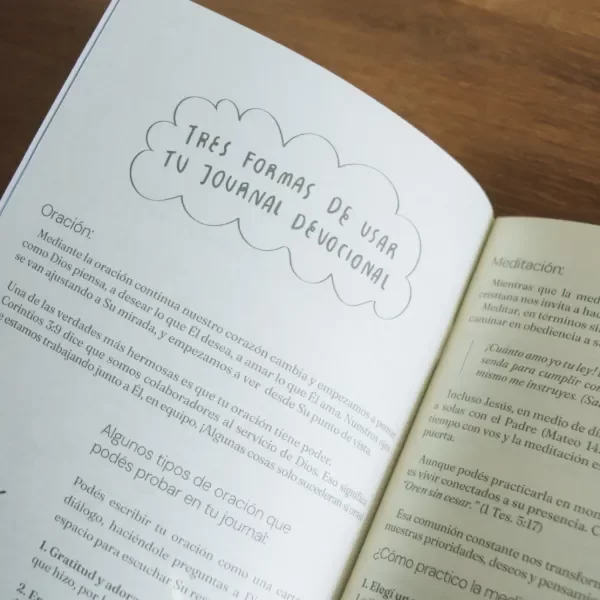 TRES FORMAS DE USAR
TU JOURNAL DEVOCIONAL
Oración:
Mediante la oración continua nuestro corazón cambia y empezamos a pensar
como Dios piensa, a desear lo que Él desea, a amar lo que Él ama. Nuestros ojos
se van ajustando a Su mirada, y empezamos a ver desde Su punto de vista.
Una de las verdades más hermosas es que tu oración tiene poder.
Corintios 3:9 dice que somos colaboradores al servicio de Dios. Eso significa
estamos trabajando junto a Él, en equipo. ¡Algunas cosas solo sucederán si
Algunos tipos de oración que
podés probar en tu journal:
Podés escribir tu oración como una carta
diálogo, haciéndole preguntas a
espacio para escuchar Su
1. Gratitud y
que hizo, por
2.
Meditación:
Mientras que la
cristiana nos invita a
Meditar, en términos
caminar en obediencia a
¡Cuánto amo yo tu ley!
senda para cumplir
mismo me instruyes.
Incluso Jesús, en medio de
a solas con el Padre (Mateo
tiempo con vos y la meditación
puerta.
Aunque podés practicarla en
es vivir conectados a su presencia.
"Oren sin cesar." (1 Tes. 5:17)
Esa comunión constante nos
nuestras prioridades, deseos y
¿Cómo practico la
1. Elegí